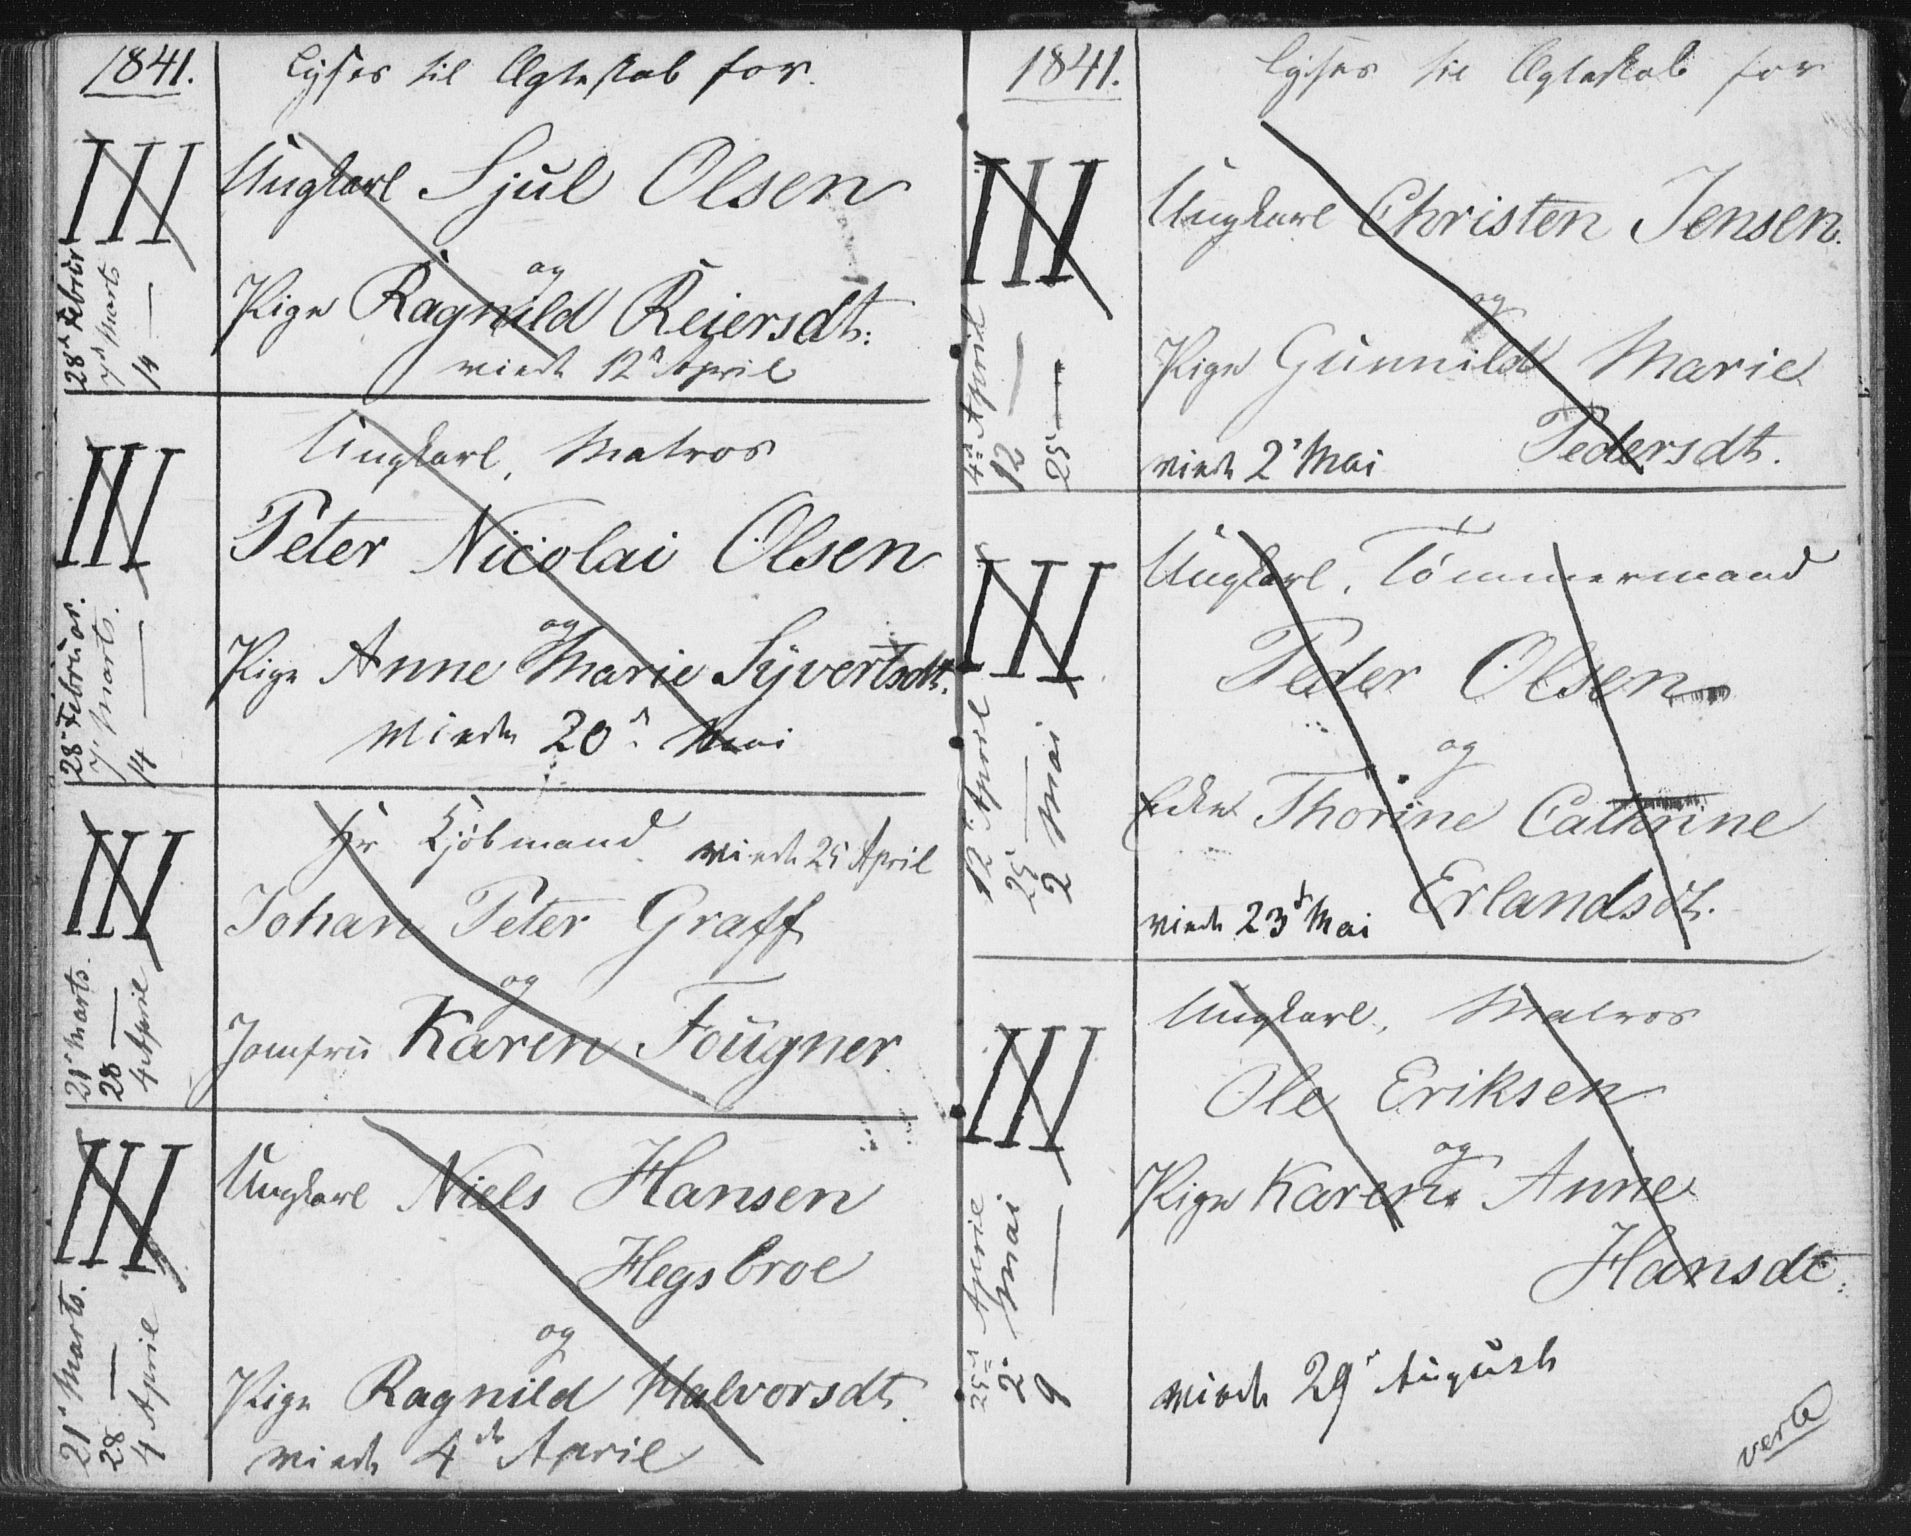 1841.
Lyses til Ægteskab for.
III
28de Februar
7de Marts
14 —
Ungkarl Sjul Olsen
og
Pige Ragnild Reiersdt:
viede 12te April
III
28de Februar.
7de Marts.
14 —
Ungkarl, Matros
Peter Nicolai Olsen
og
Pige Anne Marie Syvertsdt.
viede 20de Mai
III
21de Marts.
28 —
4 April
Hr Kjöbmand
viede 25 April
Johan Peter Graff
og
Jomfru Karen Fougner
III
21de Marts.
28 —
4 April
Ungkarl Niels Hansen
Hegsbroe
og
Pige Ragnild Halvorsdt.
viede 4de April
1841.
Lyses til Ægteskab for
III
4de April
12 —
25 —
Ungkarl Christen Jensen.
og
Pige Gunnild Marie
Pedersdt.
viede 2de Mai
III
12te April
25 —
2 Mai
Ungkarl, Tömmermand
Peder Olsen
og
Enke Thorine Cathrine
Erlandsdt.
viede 23de Mai
III
25de April
2 Mai
9 —
Ungkarl, Matros
Ole Eriksen
og
Pige Karen Anne
Hansdt:
viede 29de August
verte